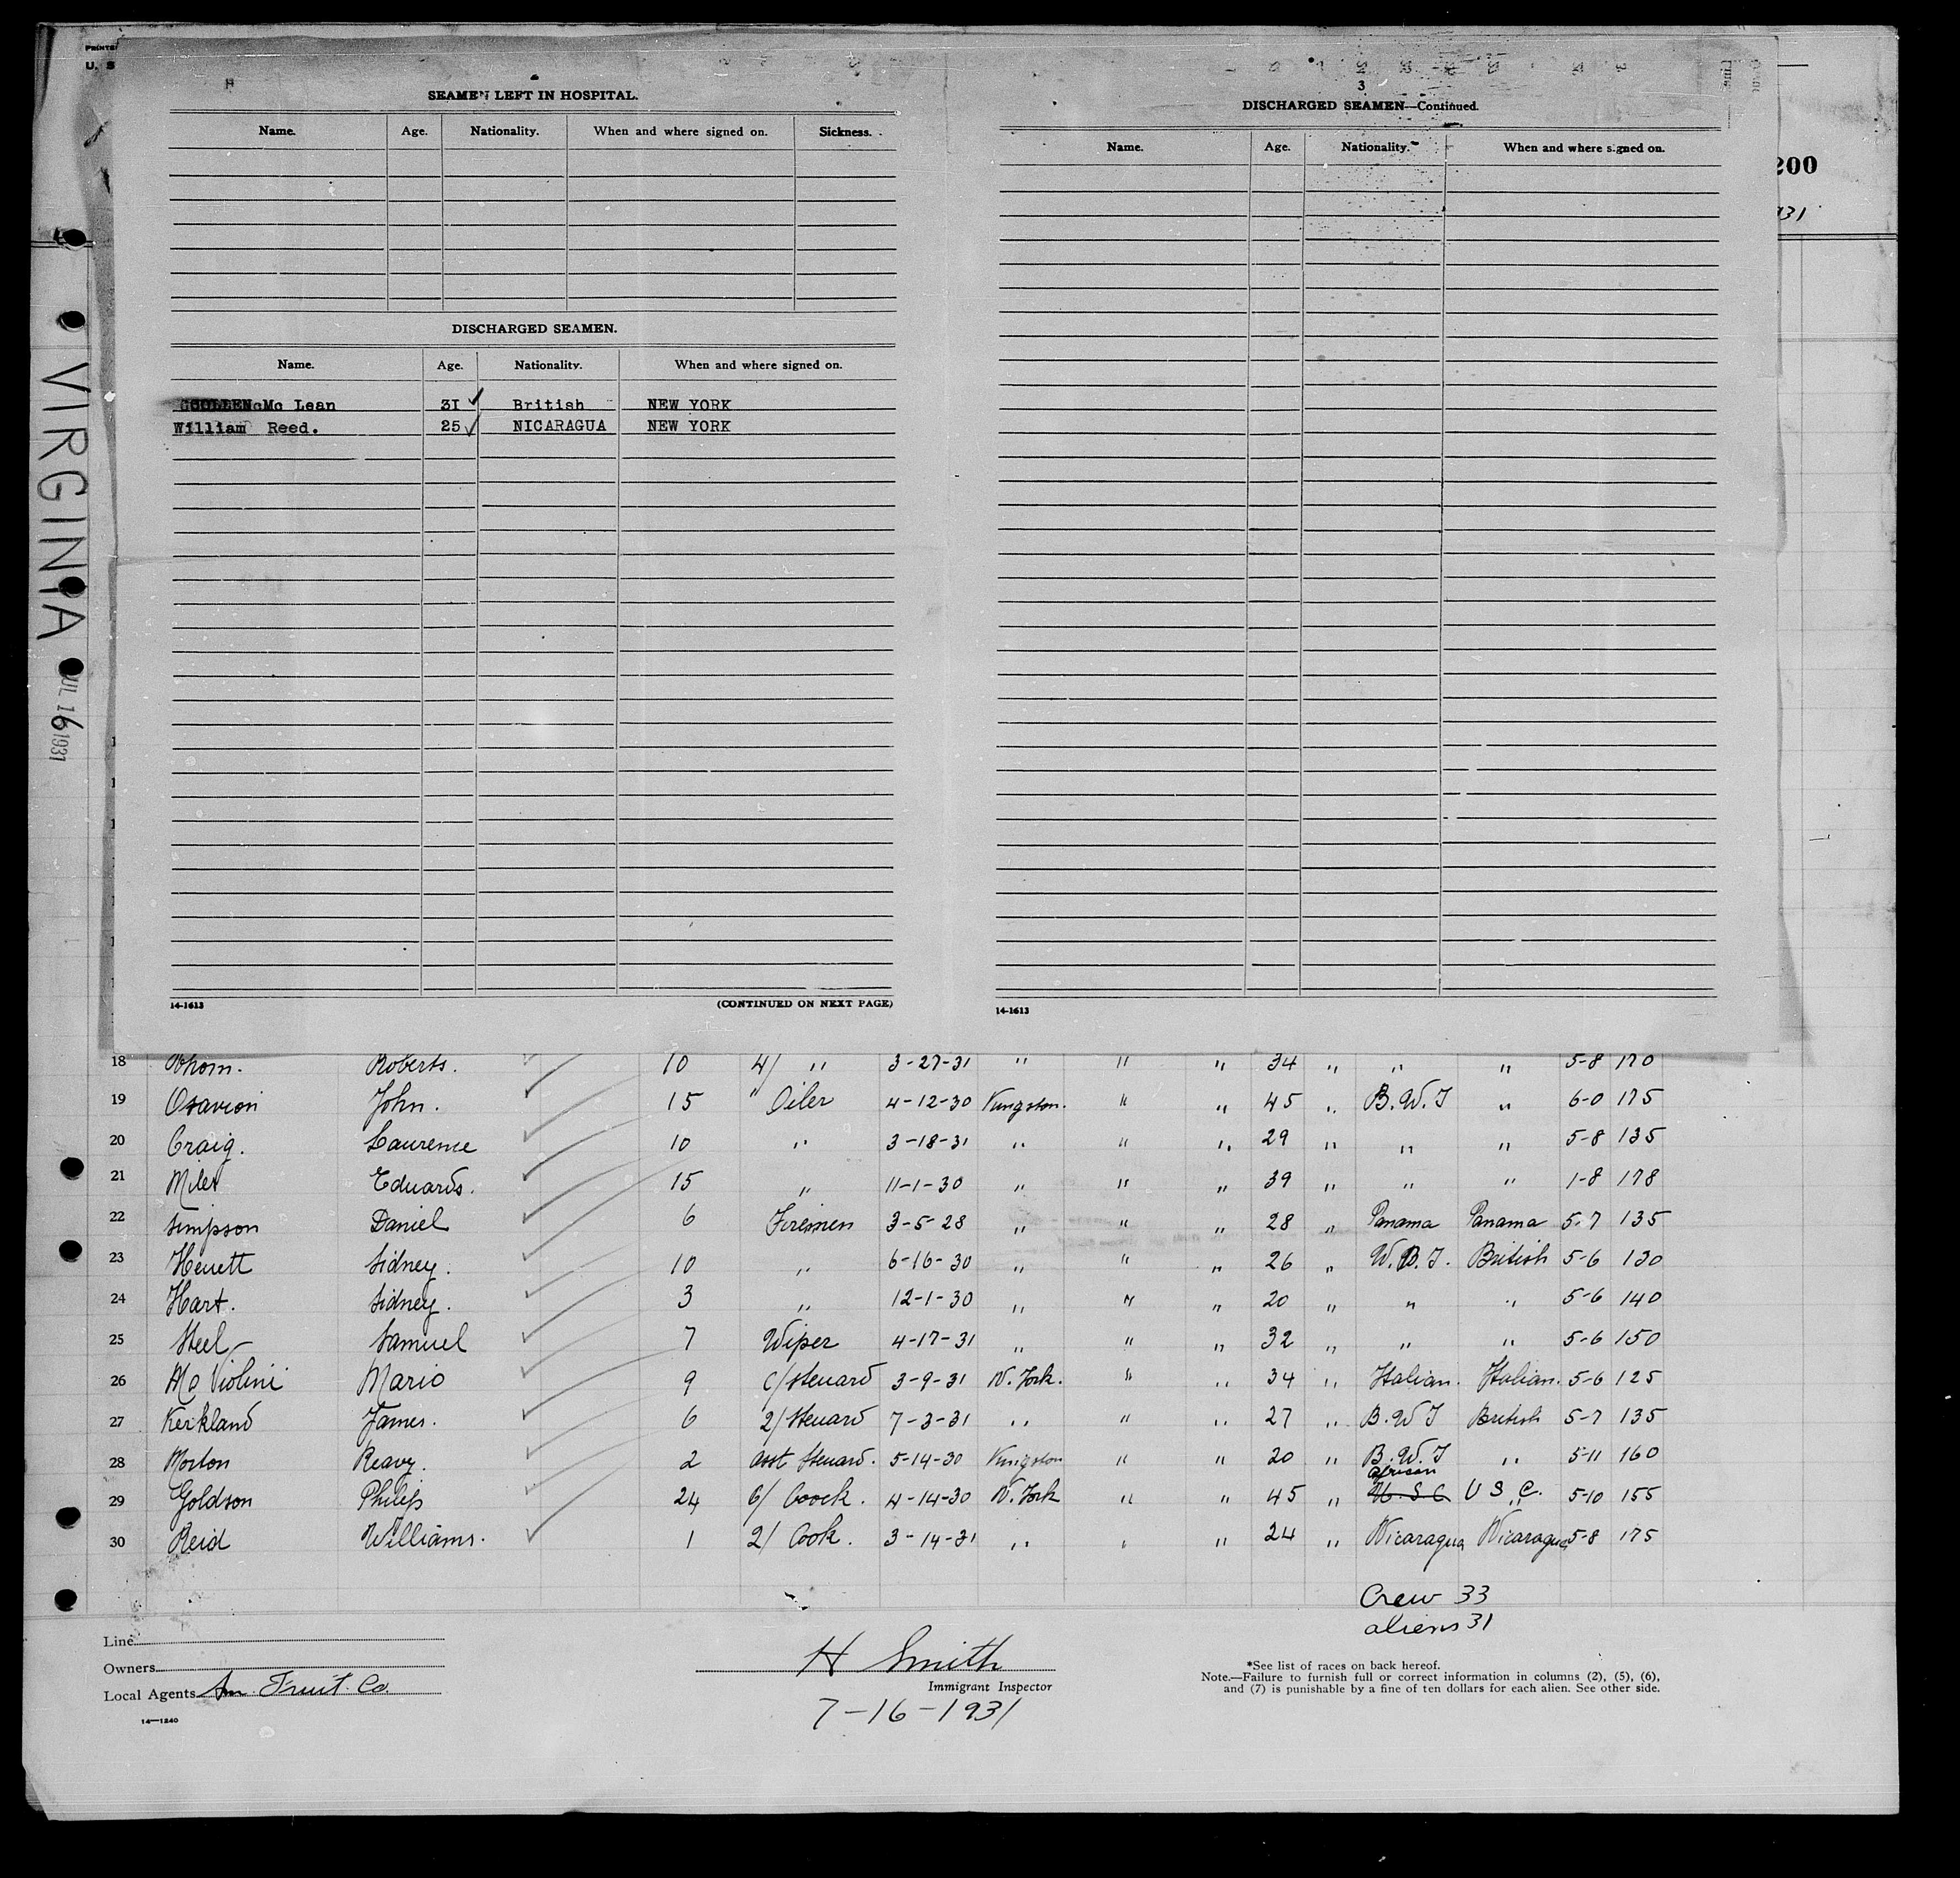 PRINTE
U. S
VIRGINIA
JUL 16 1931
200
931
SEAMEN LEFT IN HOSPITAL.
Name. Age. Nationality. When and where signed on. Sickness.
DISCHARGED SEAMEN.
Name. Age. Nationality. When and where signed on.
Mc Lean 31 ✓ British NEW YORK
William Reed. 25 ✓ NICARAGUA NEW YORK
14-1613 (CONTINUED ON NEXT PAGE)
3
DISCHARGED SEAMEN—Continued.
Name. Age. Nationality. When and where signed on.
14-1613
18 Roberts. ✓ 10 4/ " 3-27-31 " " " 34 " " " 5-8 170
19 John. ✓ 15 " Oiler 4-12-30 Kingston. " " 45 " B.W.I " 6-0 175
20 Craig. Laurence ✓ 10 " 3-18-31 " " " 29 " " " 5-8 135
21 Miles Eduards. ✓ 15 " 11-1-30 " " " 39 " " " 1-8 178
22 Simpson Daniel ✓ 6 Firemen 3-5-28 " " " 28 " Panama Panama 5-7 135
23 Heuett Sidney. ✓ 10 " 6-16-30 " " " 26 " W.B.I. British 5-6 130
24 Hart. Sidney. ✓ 3 " 12-1-30 " " " 20 " " " 5-6 140
25 Steel Samuel ✓ 7 Wiper 4-17-31 " " " 32 " " " 5-6 150
26 Mario ✓ 9 C/Steuard 3-9-31 N. York. " " 34 " Italian. Italian. 5-6 125
27 Kerkland James. ✓ 6 2/Steuard 7-3-31 " " " 27 " B.W.I British 5-7 135
28 Morton Reavy. ✓ 2 asst Steuard. 5-14-30 Kingston " " 20 " B.W.I " 5-11 160
african
29 Goldson Philip ✓ 24 Coock. 4-14-30 N. York " " 45 " U.S.C U S C. 5-10 155
30 Reid Williams. ✓ 1 2/ Cook. 3-14-31 " " " 24 " Nicaragua Nicaragua 5-8 175
Crew 33
aliens 31
Line
Owners
Local Agents Am. Fruit. Co.
14—1240
H Smith
Immigrant Inspector
7-16-1931
*See list of races on back hereof.
Note.—Failure to furnish full or correct information in columns (2), (5), (6),
and (7) is punishable by a fine of ten dollars for each alien. See other side.